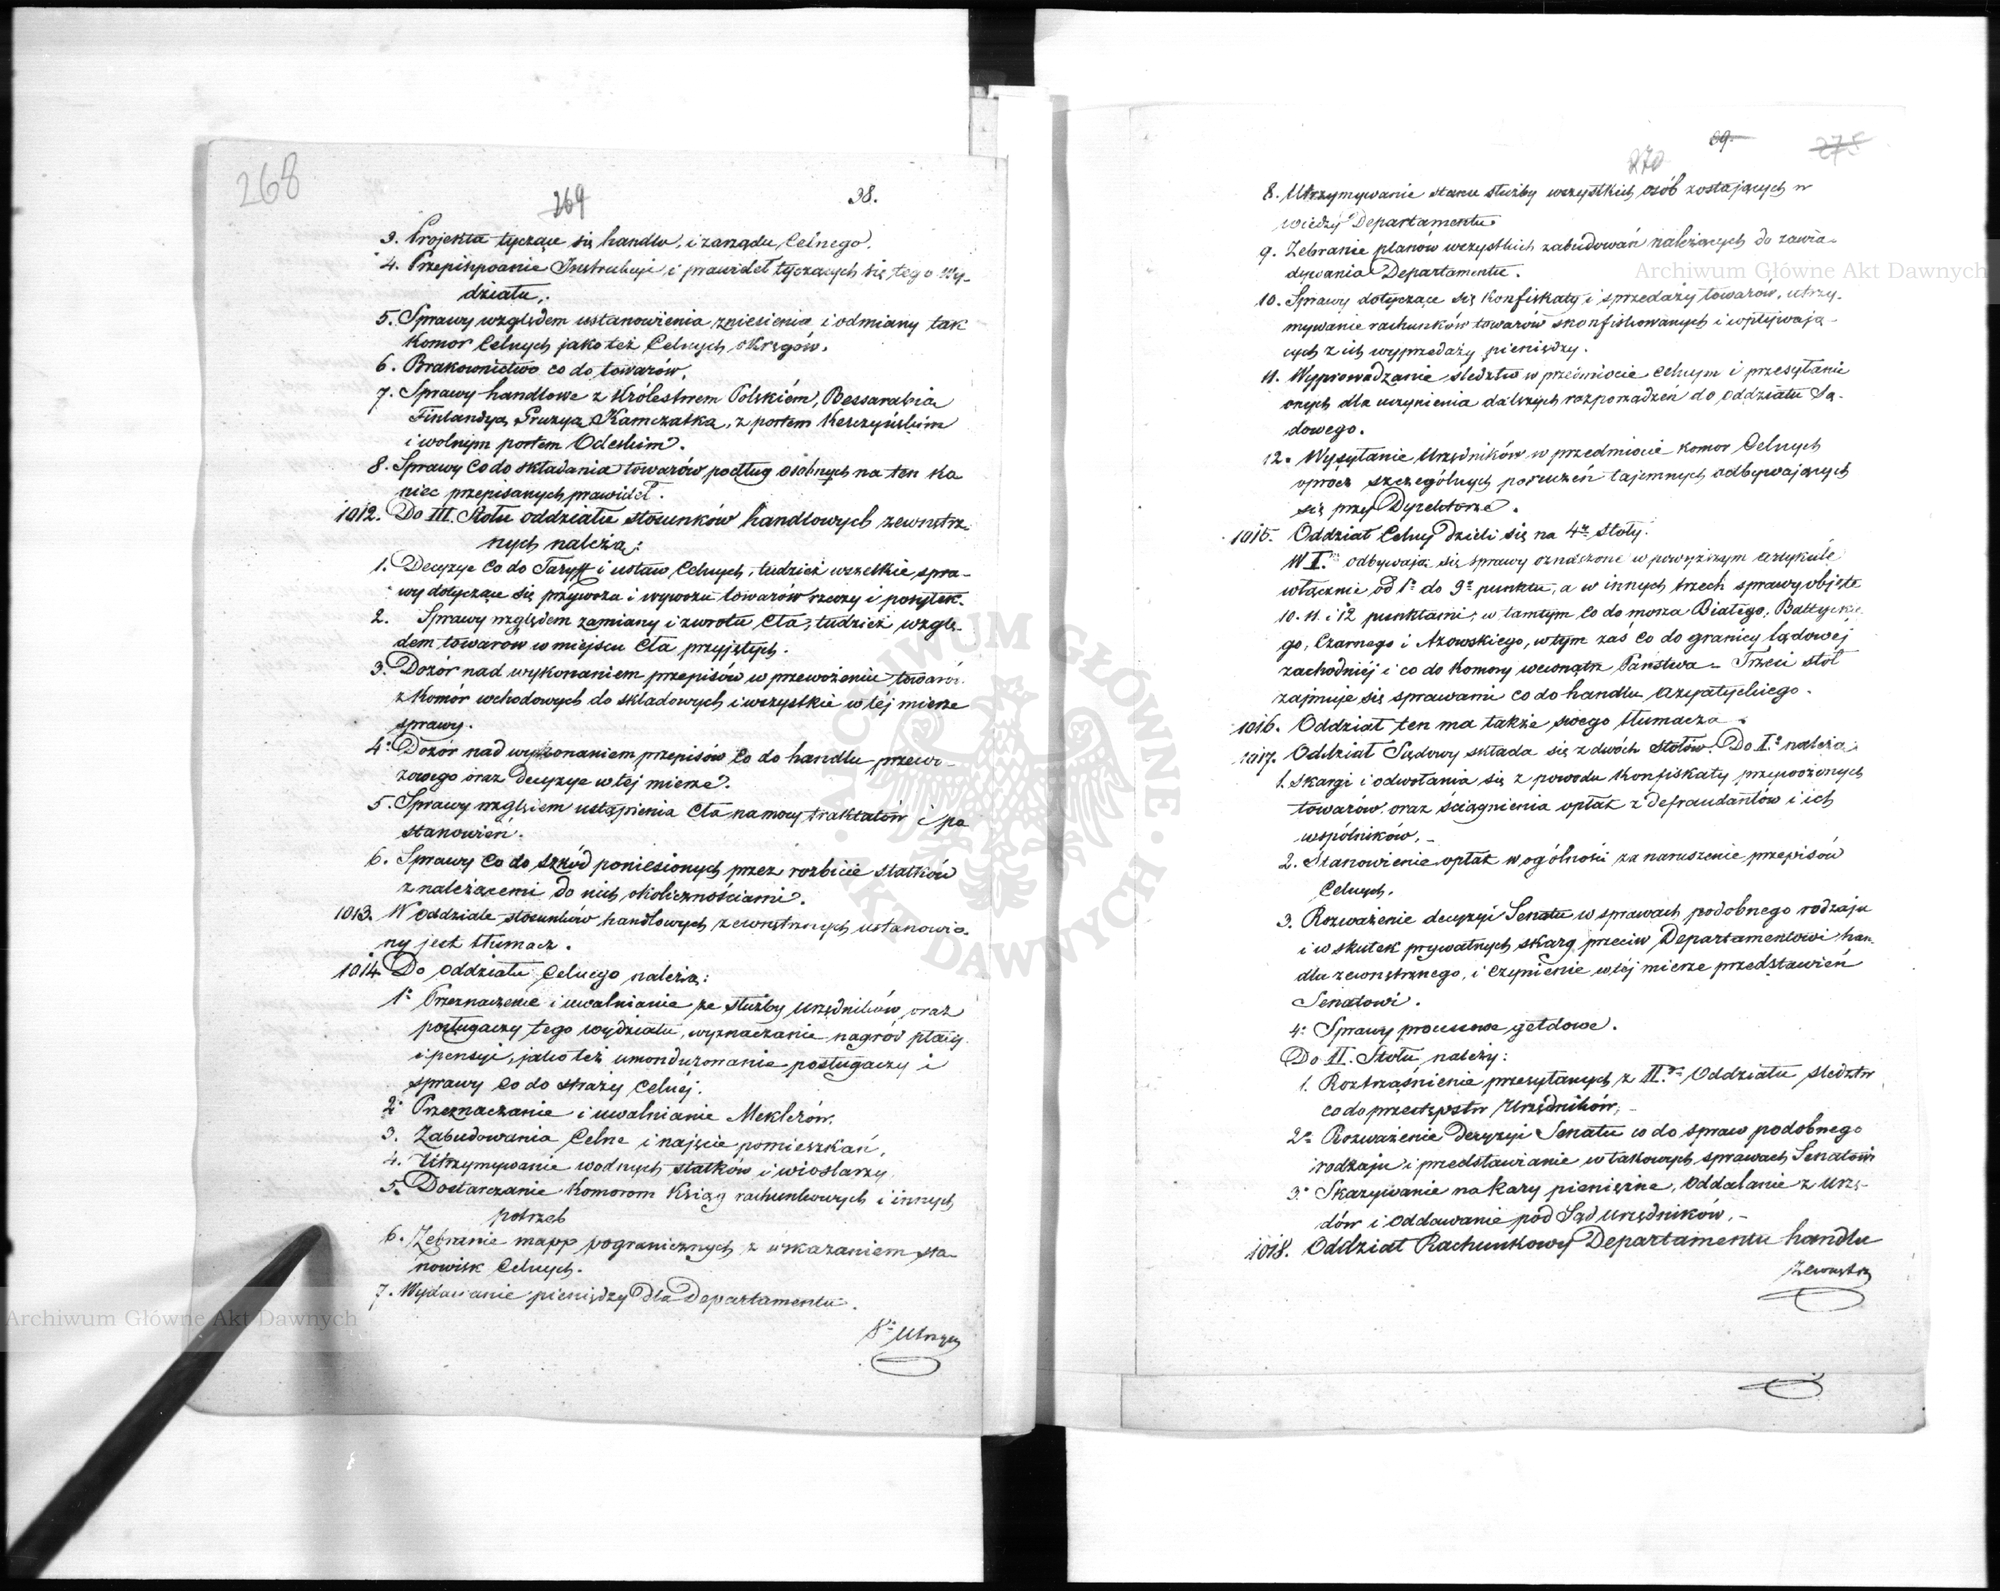 268
269
38.
3. Projekta tyczące się handlu, i zarządu Celnego.
4. Przepisywanie Instrukcji, i prawideł tyczących się tego Wy-
działu,.
5. Sprawy względem ustanowienia zniesienia i odmiany tak
Komor Celnych jako też Celnych okręgów.
6. Brakownictwo co do towarów.
7. Sprawy handlowe z Królestwem Polskiém, Bessarabią
Finlandyą, Gruzyą, Kamczatką, z portem Kerczyńskim
i wolnym portem Odeskim.
8. Sprawy co do składania towarów podług osobnych na ten ko
niec przepisanych prawideł.
1012. Do III. Stołu oddziału stosunków handlowych zewnętrz-
nych należą:
1. Decyzye co do Taryff i ustaw Celnych, tudzież wszelkie spra-
wy dotyczące się przywozu i wywozu towarów rzeczy i pożytek.
2. Sprawy względem zamiany i zwrotu Cła, tudzież wzglę-
dem towarów w miejscu Cła przyjętych.
3. Dozór nad wykonaniem przepisów w przewożeniu towarów
z Komór wchodowych do składowych i wszystkie w téj mierze
sprawy.
4. Dozór nad wykonaniem przepisów co do handlu przewo-
zowego oraz decyzye w téj mierze.
5. Sprawy względem ustąpienia Cła na mocy traktatów i po
stanowień.
6. Sprawy co do szkód poniesionych przez rozbicie statków
z należącemi do nich okolicznościami.
1013. W Oddziale stosunków handlowych zewnętrznych ustanowio-
ny jest tłumacz.
1014. Do Oddziału Celnego należą:
1º Przeznaczenie i uwalnianie ze służby Urzędników oraz
posługaczy tego wydziału, wyznaczanie nagród płacy
i pensyi, jako też umundurowanie posługaczy i
sprawy co do straży Celnéj.
2º Przeznaczanie i uwalnianie Meklerów.
3. Zabudowania Celne i najęcie pomieszkań.
4. Utrzymywanie wodnych statków i wioślarzy
5. Dostarczanie Komorom Ksiąg rachunkowych i innych
potrzeb
6. Zebranie mapp pogranicznych z wskazaniem sta-
nowisk Celnych.
7. Wydawanie pieniędzy dla Departamentu.
8º Utrzym
39.
270
275
8. Utrzymywanie stanu służby wszystkich osób zostających w
wiedzy Departamentu
9. Zebranie planów wszystkich zabudowań należących do zawia-
dywania Departamentu.
10. Sprawy dotyczące się Konfiskaty i sprzedaży towarów, utrzy-
mywanie rachunków towarów skonfiskowanych i wpływają-
cych z ich wyprzedaży pieniędzy.
11. Wyprowadzanie śledztw w przedmiocie celnym i przesyłanie
onych dla uczynienia dalszych rozporządzeń do oddziału Są-
dowego.
12. Wysyłanie Urzędników w przedmiocie Komor Celnych
oprócz szczególnych poruczeń tajemnych odbywających
się przy Dyrektorze.
1015. Oddział Celny dzieli się na 4ry Stoły.
W I. odbywają się sprawy oznaczone w powyższym artykule
włącznie od 1º do 9º punktu, a w innych trzech sprawy objęte
10. 11. i 12 punktami; w tamtym co do morza Białego, Bałtyckie
go, Czarnego i Azowskiego, w tym zaś co do granicy lądowej
zachodniéj i co do Komory wewnątrz Państwa – Trzeci stół
zajmuje się sprawami co do handlu azyatyckiego.
1016. Oddział ten ma także swego tłumacza.
1017. Oddział Sądowy składa się z dwóch Stołów. Do Iº należą:
1. Skargi i odwołania się z powodu Konfiskaty przywożonych
towarów, oraz ściągnienia opłat z defraudantów i ich
wspólników. –
2. Stanowienie opłat w ogólności za naruszenie przepisów
Celnych.
3. Rozważenie decyzyi Senatu w sprawach podobnego rodzaju
i w skutek prywatnych skarg przeciw Departamentowi han-
dlu zewnętrznego, i czynienie w téj mierze przedstawień
Senatowi.
4. Sprawy processowe giełdowe.
Do II. Stołu należy:
1. Roztrząśnienie przesyłanych z III.go Oddziału śledztw
co do przestępstw Urzędników, –
2º Rozważenie Decyzyi Senatu co do spraw podobnego
rodzaju i przedstawianie w takowych sprawach Senatowi
3. Skazywanie na Kary pieniężne, oddalanie z urzę-
dów i oddawanie pod Sąd Urzędników. –
1018. Oddział Rachunkowy Departamentu handlu
zewnętrz
Archiwum Główne Akt Dawnych
Archiwum Główne Akt Dawnych
ARCHIWUM GŁÓWNE · AKT DAWNYCH ·